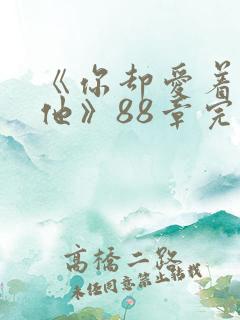 《你却爱着
他》88章完
高橋二路
未经同意禁止转载